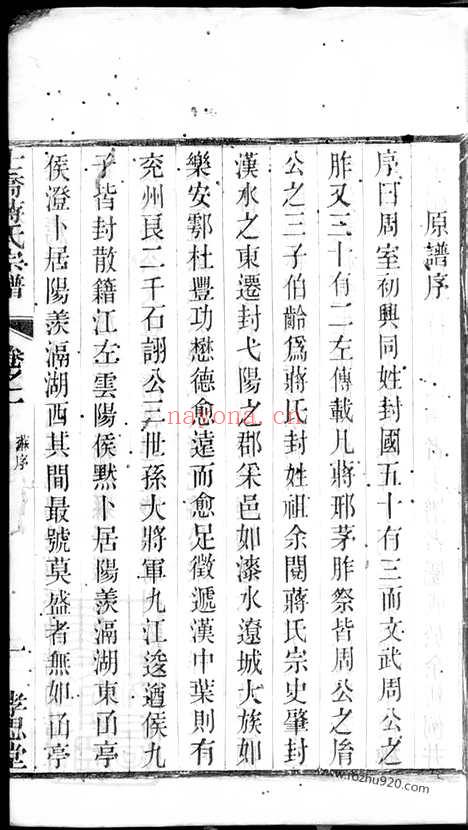 原譜序
序曰周室初興同姓封國五十有三而文武周公之
胙又三十有二左傳載凡蔣邢茅胙祭皆周公之胤
公之三子伯齡爲蔣氏封姓祖余閱蔣氏宗史肇封
漢水之東遷封弋陽之郡采邑如漆水遼城大族如
樂安鄠杜豐功懋德愈遠而愈足徵遞漢中葉則有
兖州良二千石詡公三世孫大將軍九江逡遒侯九
子皆封散籍江左雲陽侯默卜居陽羨滆湖東㓊亭
侯澄卜居陽羨滆湖西其間最號莫盛者無如㓊亭
蔣氏宗譜
卷之一
序
一
孝思堂
nayona.cn
www.rouhu920.com